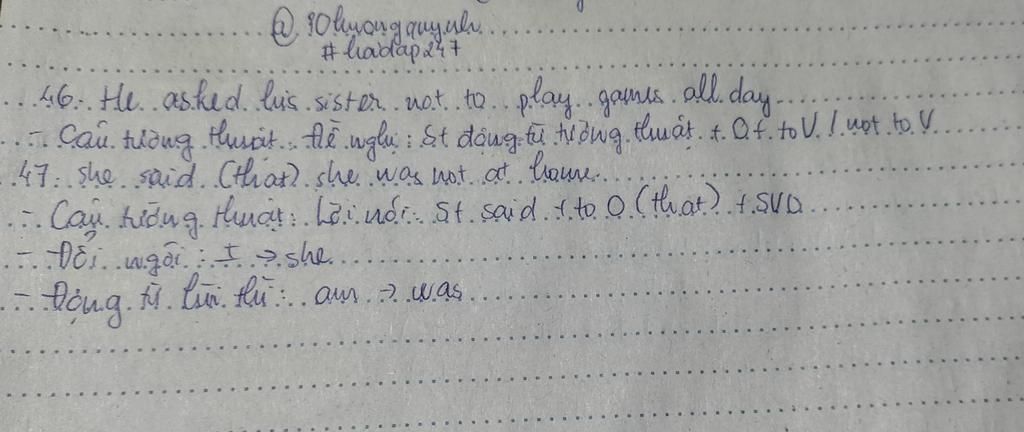 @ 30huongquynh
#hadap247
46. He asked his sister not to play games all day
- Câu tường thuật Đề nghị: S + động từ tường thuật + O + to V / not to V
47. she said (that) she was not at home
- Câu tường thuật: Lời nói: S + said + to O (that) + SVO
- Đổi ngôi: I → she
- Động từ lùi thì: am → was